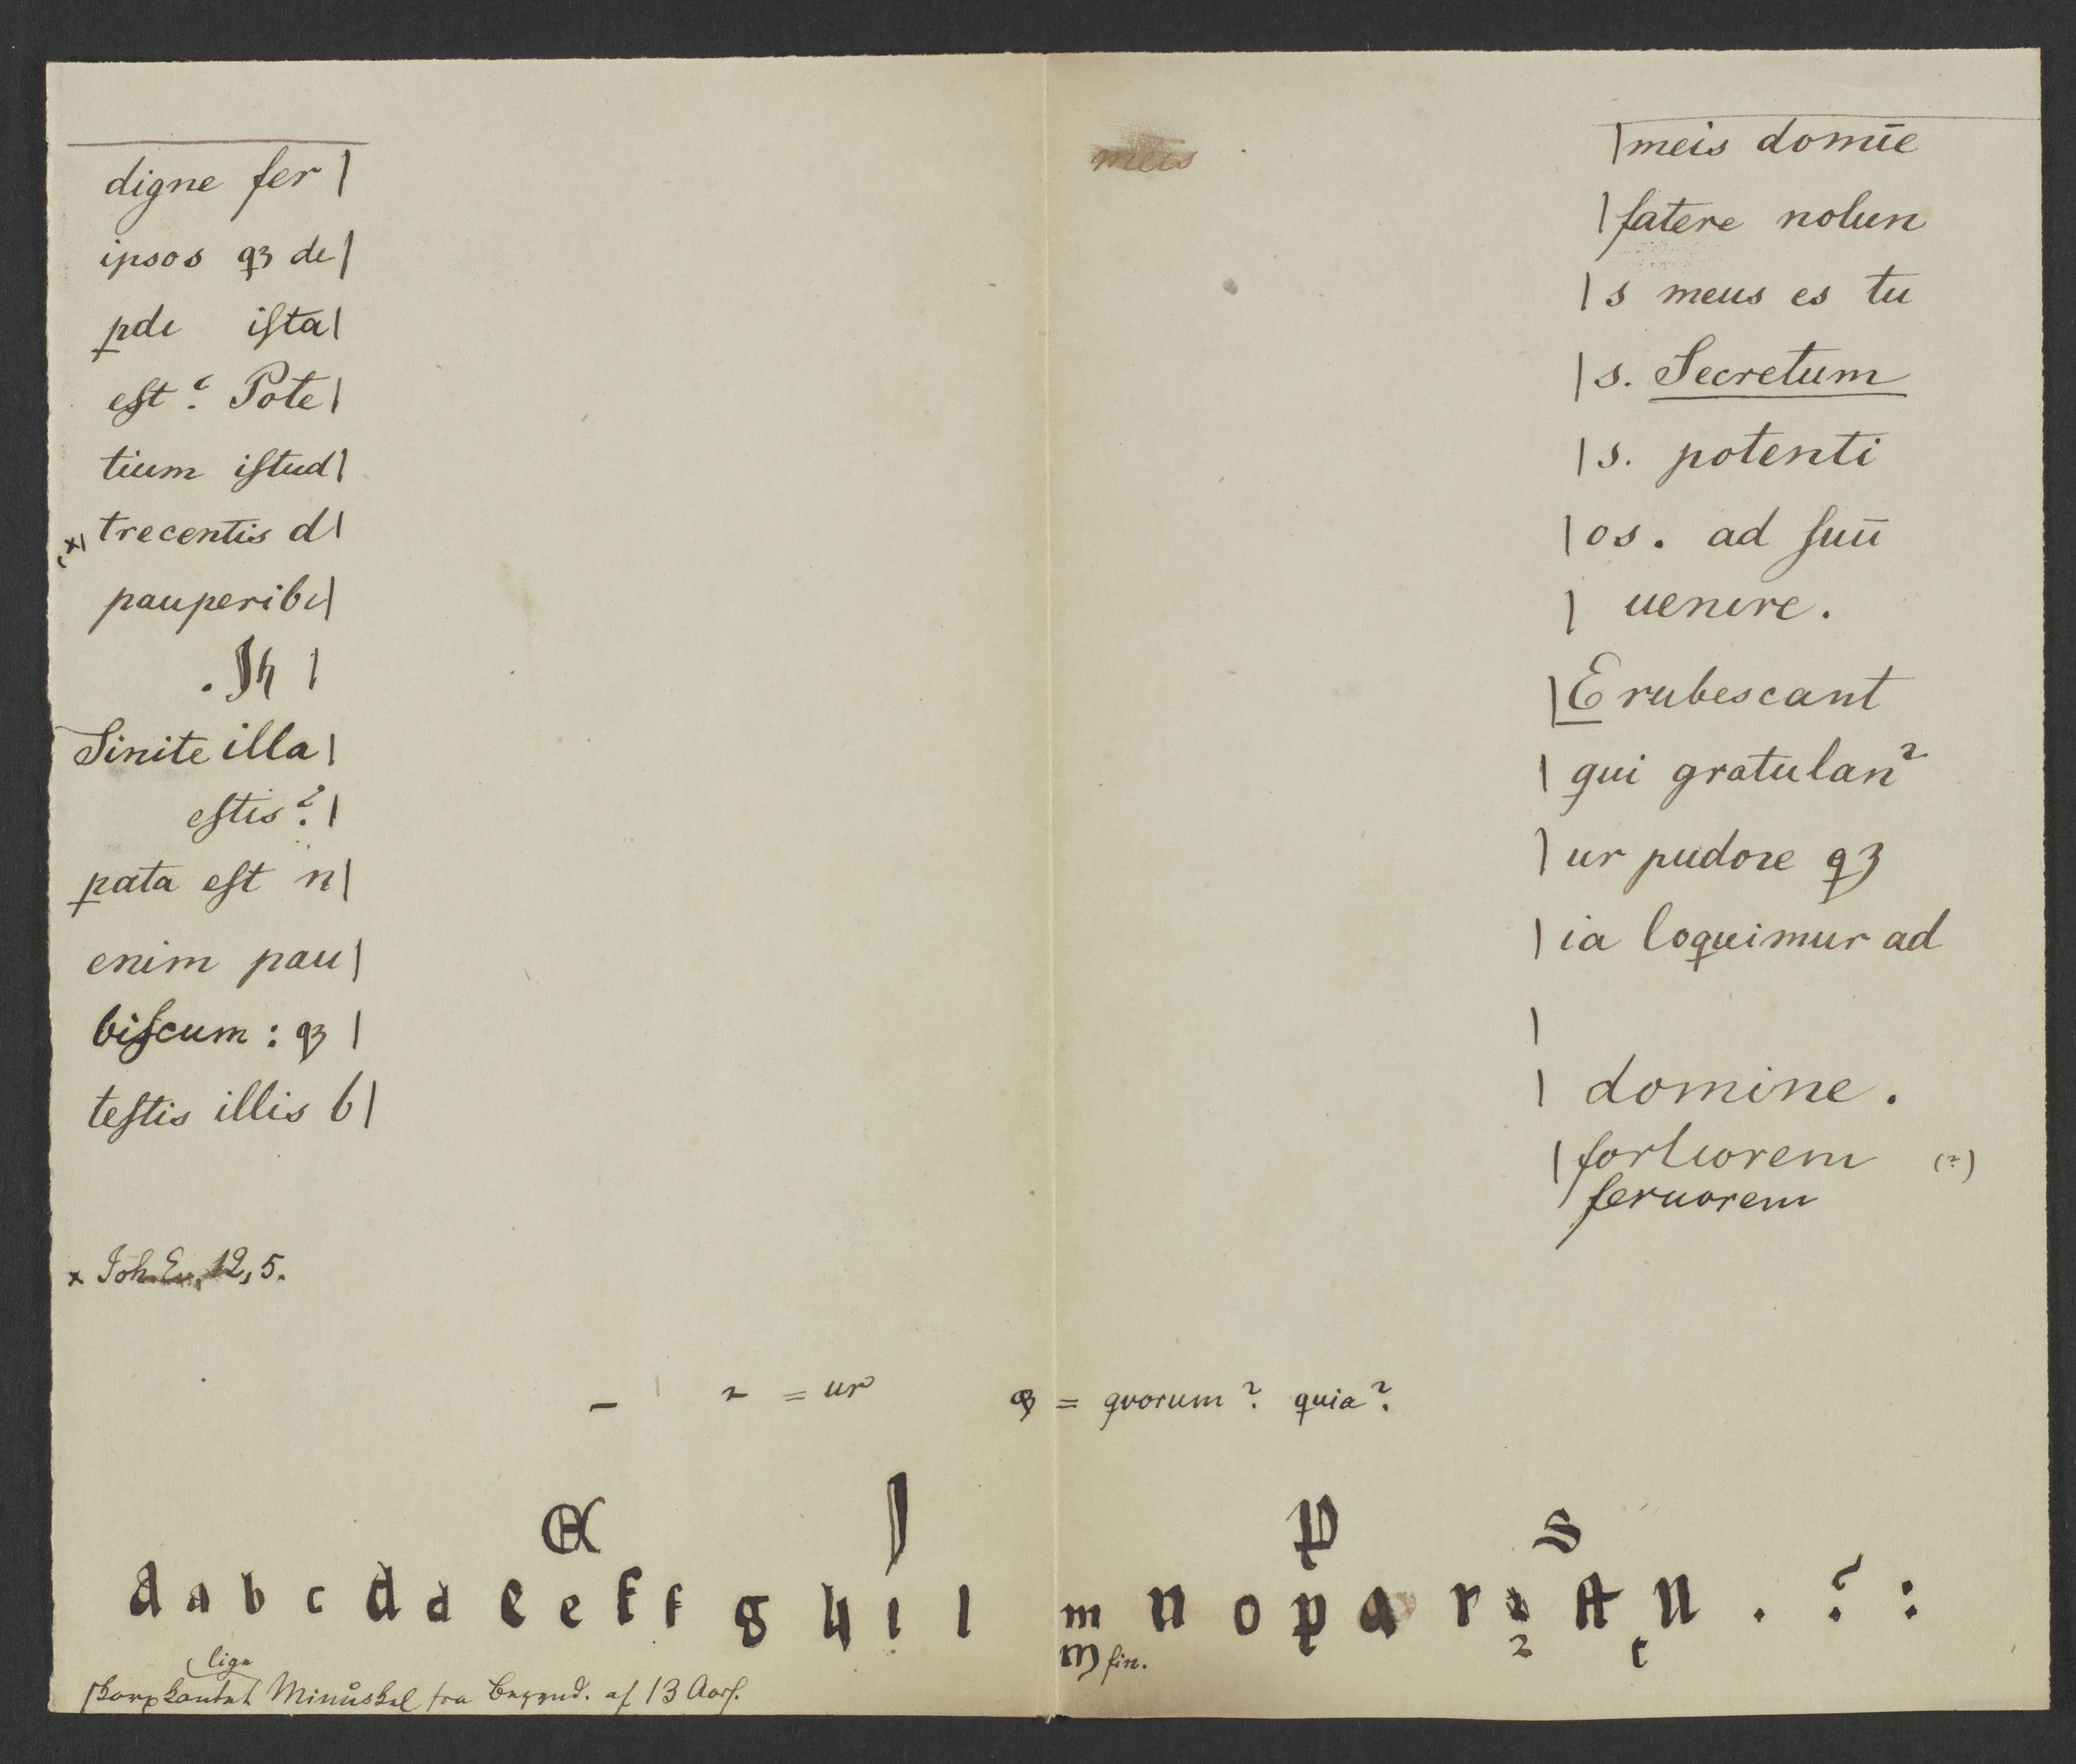 digne fer |
ipsos qꝫ de |
ꝑde iſta |
eſt ? Pote |
tium iſtud |
(x) trecentis d |
pauperibu |
. Ih |
Sinite illa |
eſtis ? |
ꝑata eſt n |
enim pau |
biſcum : qꝫ |
teſtis illis b |
x Joh. Ev. 12, 5.
meis
| meis domīe
| fatere nolun
| s meus es tu
| s. Secretum
| s. potenti
| os . ad ſuū
| uenire .
| Erubescant
| qui gratulan²
| ur pudoꝛe qꝫ
| ia loquimur ad
|
| domine .
| fortiorem (?)
feruorem
– ~ = ur qꝫ = quorum ? quia ?
E J P S
a a b c d d e e f f g h i l m n o p q r ſt u . ? :
m fin. 2 t
liga
ſkarpkantet Minuskel fra Begynd. af 13 Aarh.